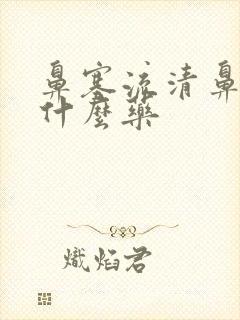 鼻塞流清鼻
什麽藥
熾焰君